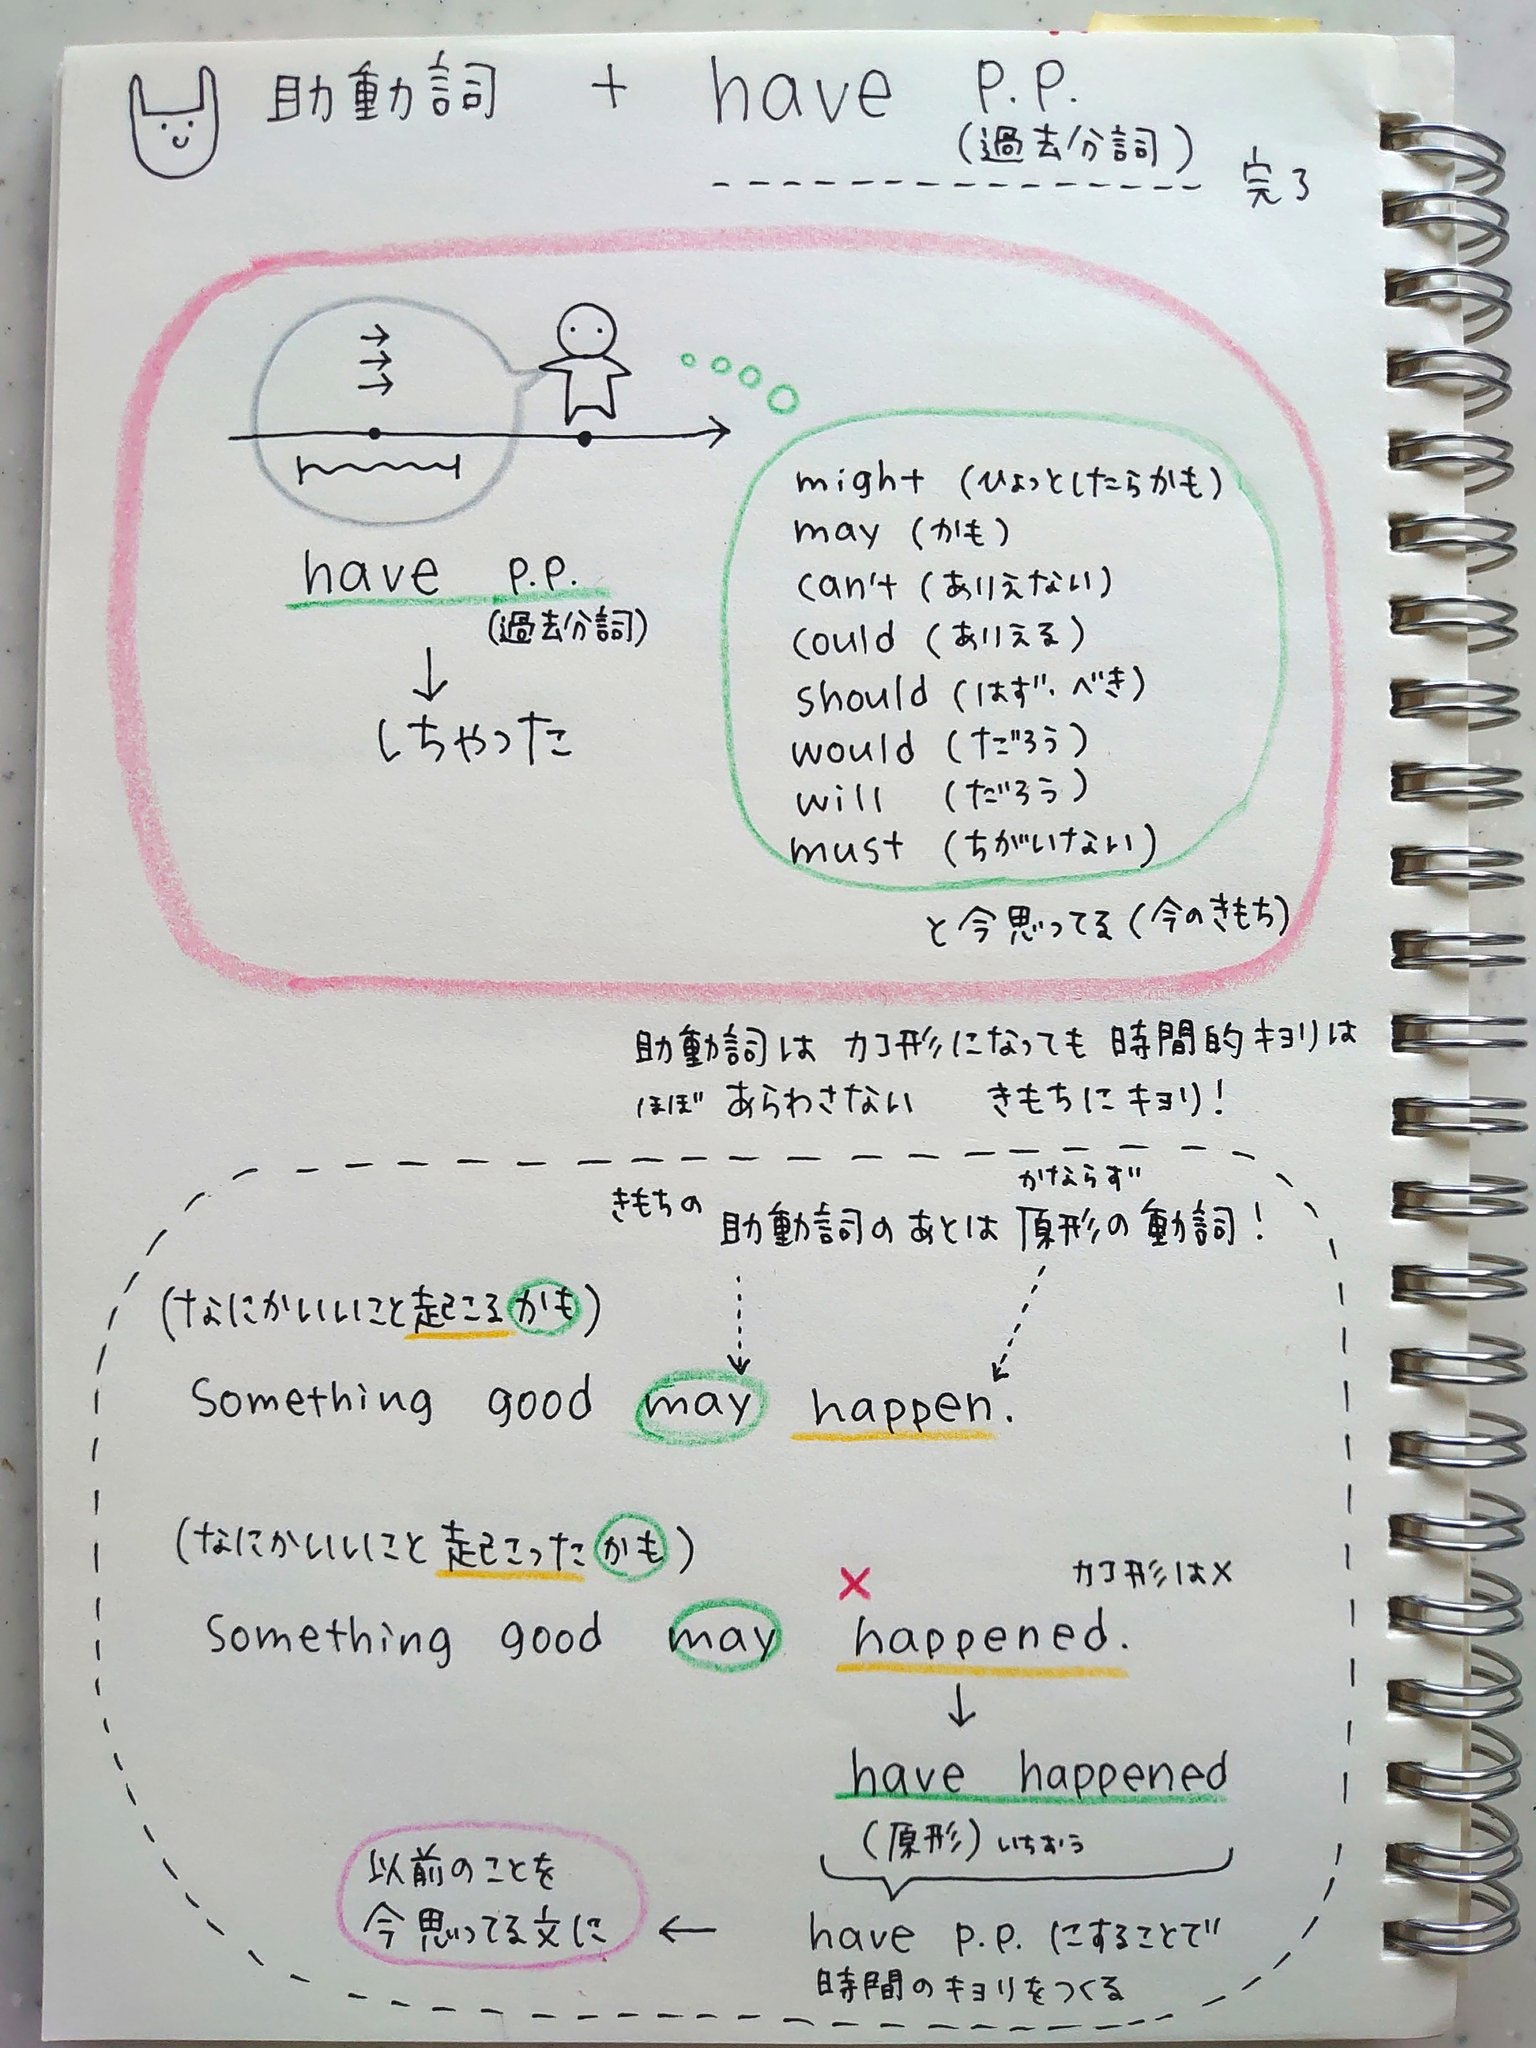 助動詞 + have p.p.
(過去分詞)
完了
have p.p.
(過去分詞)
↓
しちゃった
might (ひょっとしたらかも)
may (かも)
can't (ありえない)
could (ありえる)
should (はず・べき)
would (だろう)
will (だろう)
must (ちがいない)
と今思ってる(今のきもち)
助動詞は カコ形になっても 時間的キョリは
ほぼ あらわさない きもちにキョリ!
かならず
きもちの 助動詞のあとは 原形の動詞!
(なにかいいこと起こるかも)
Something good may happen.
(なにかいいこと起こったかも)
× カコ形は×
Something good may happened.
↓
have happened
(原形)いちおう
have p.p. にすることで
時間のキョリをつくる
←
以前のことを
今思ってる文に